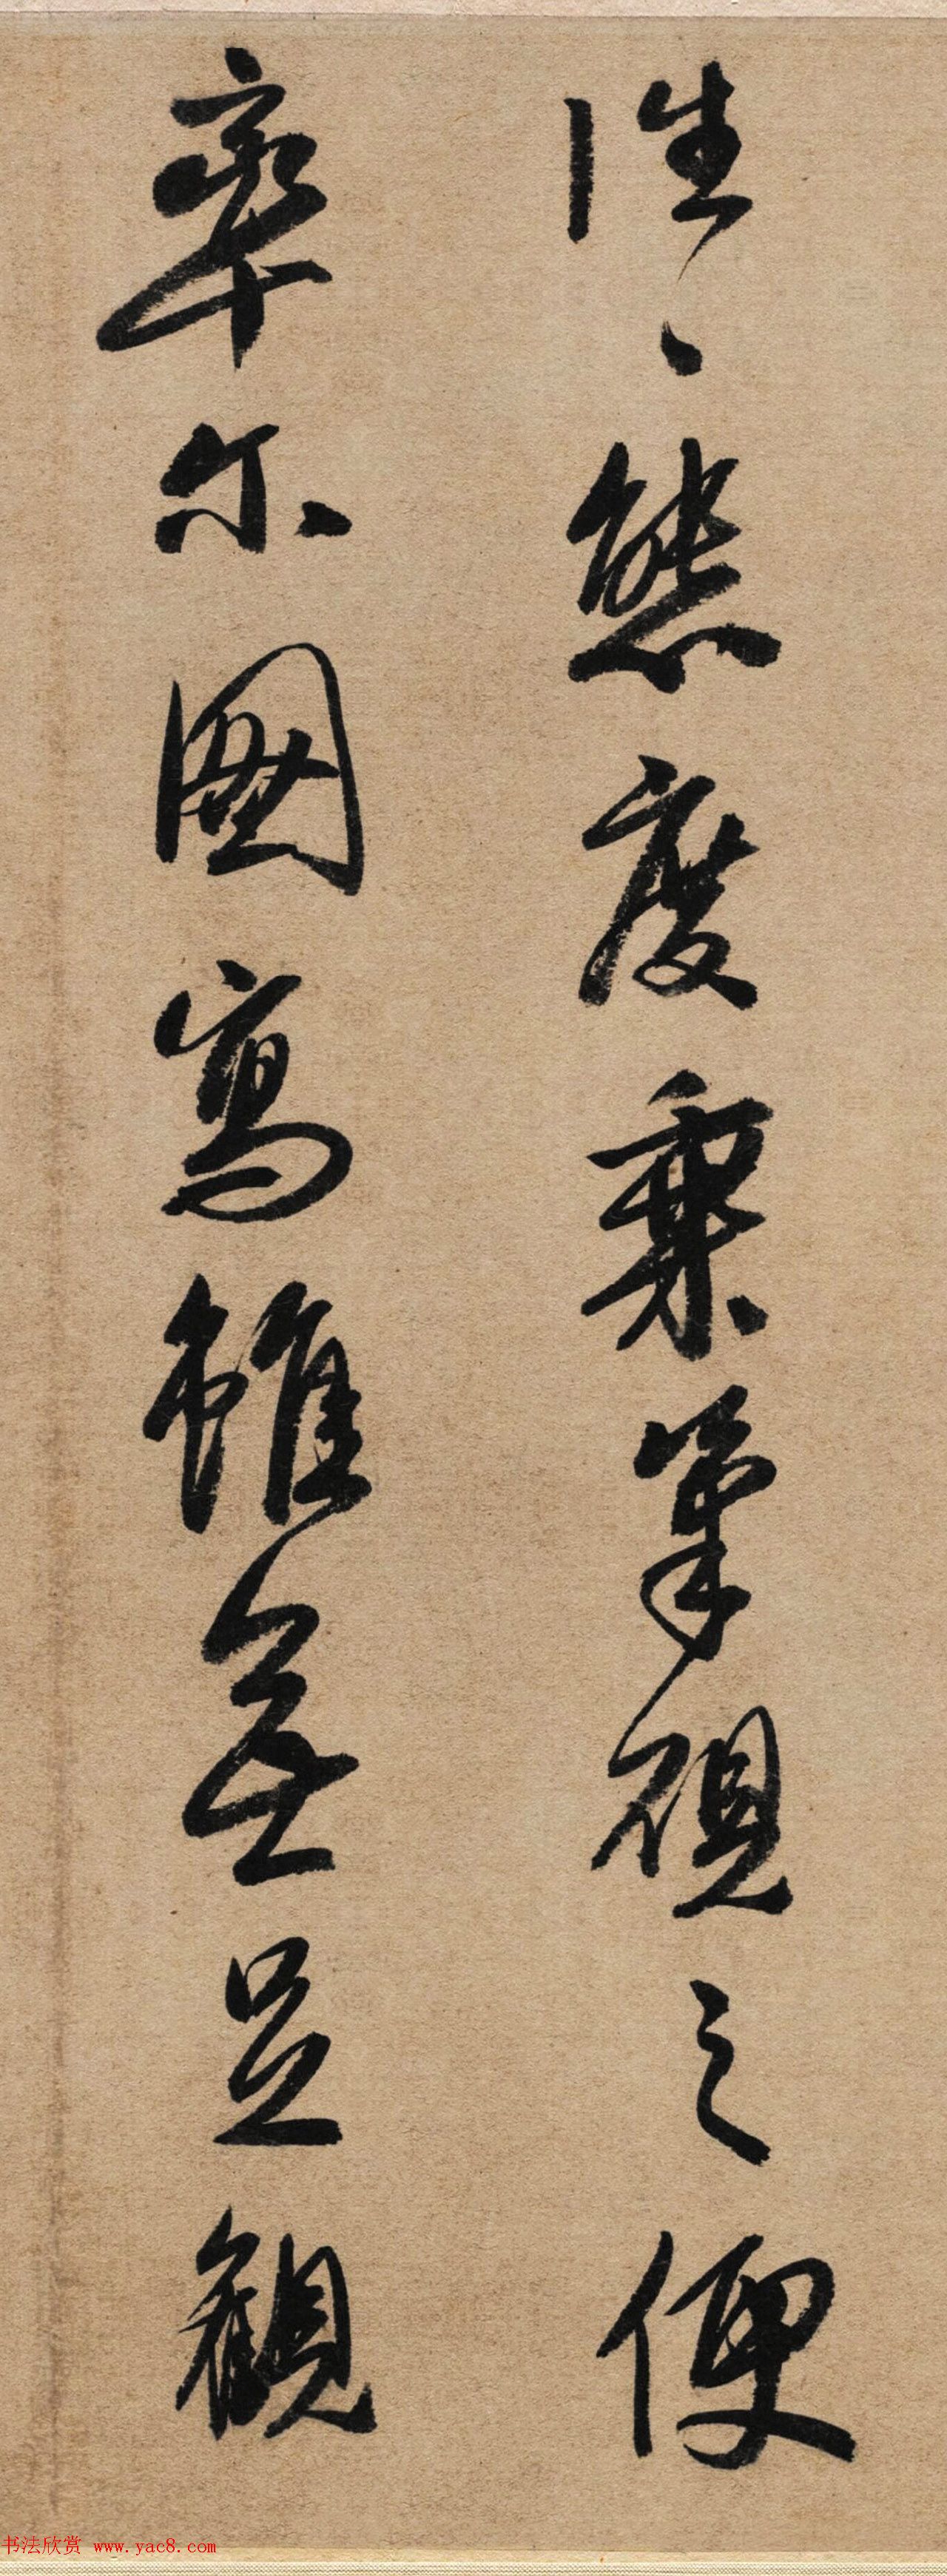 態度乘筆硯之便
率尔圖寫雖無足觀
书法欣赏 www.yac8.com